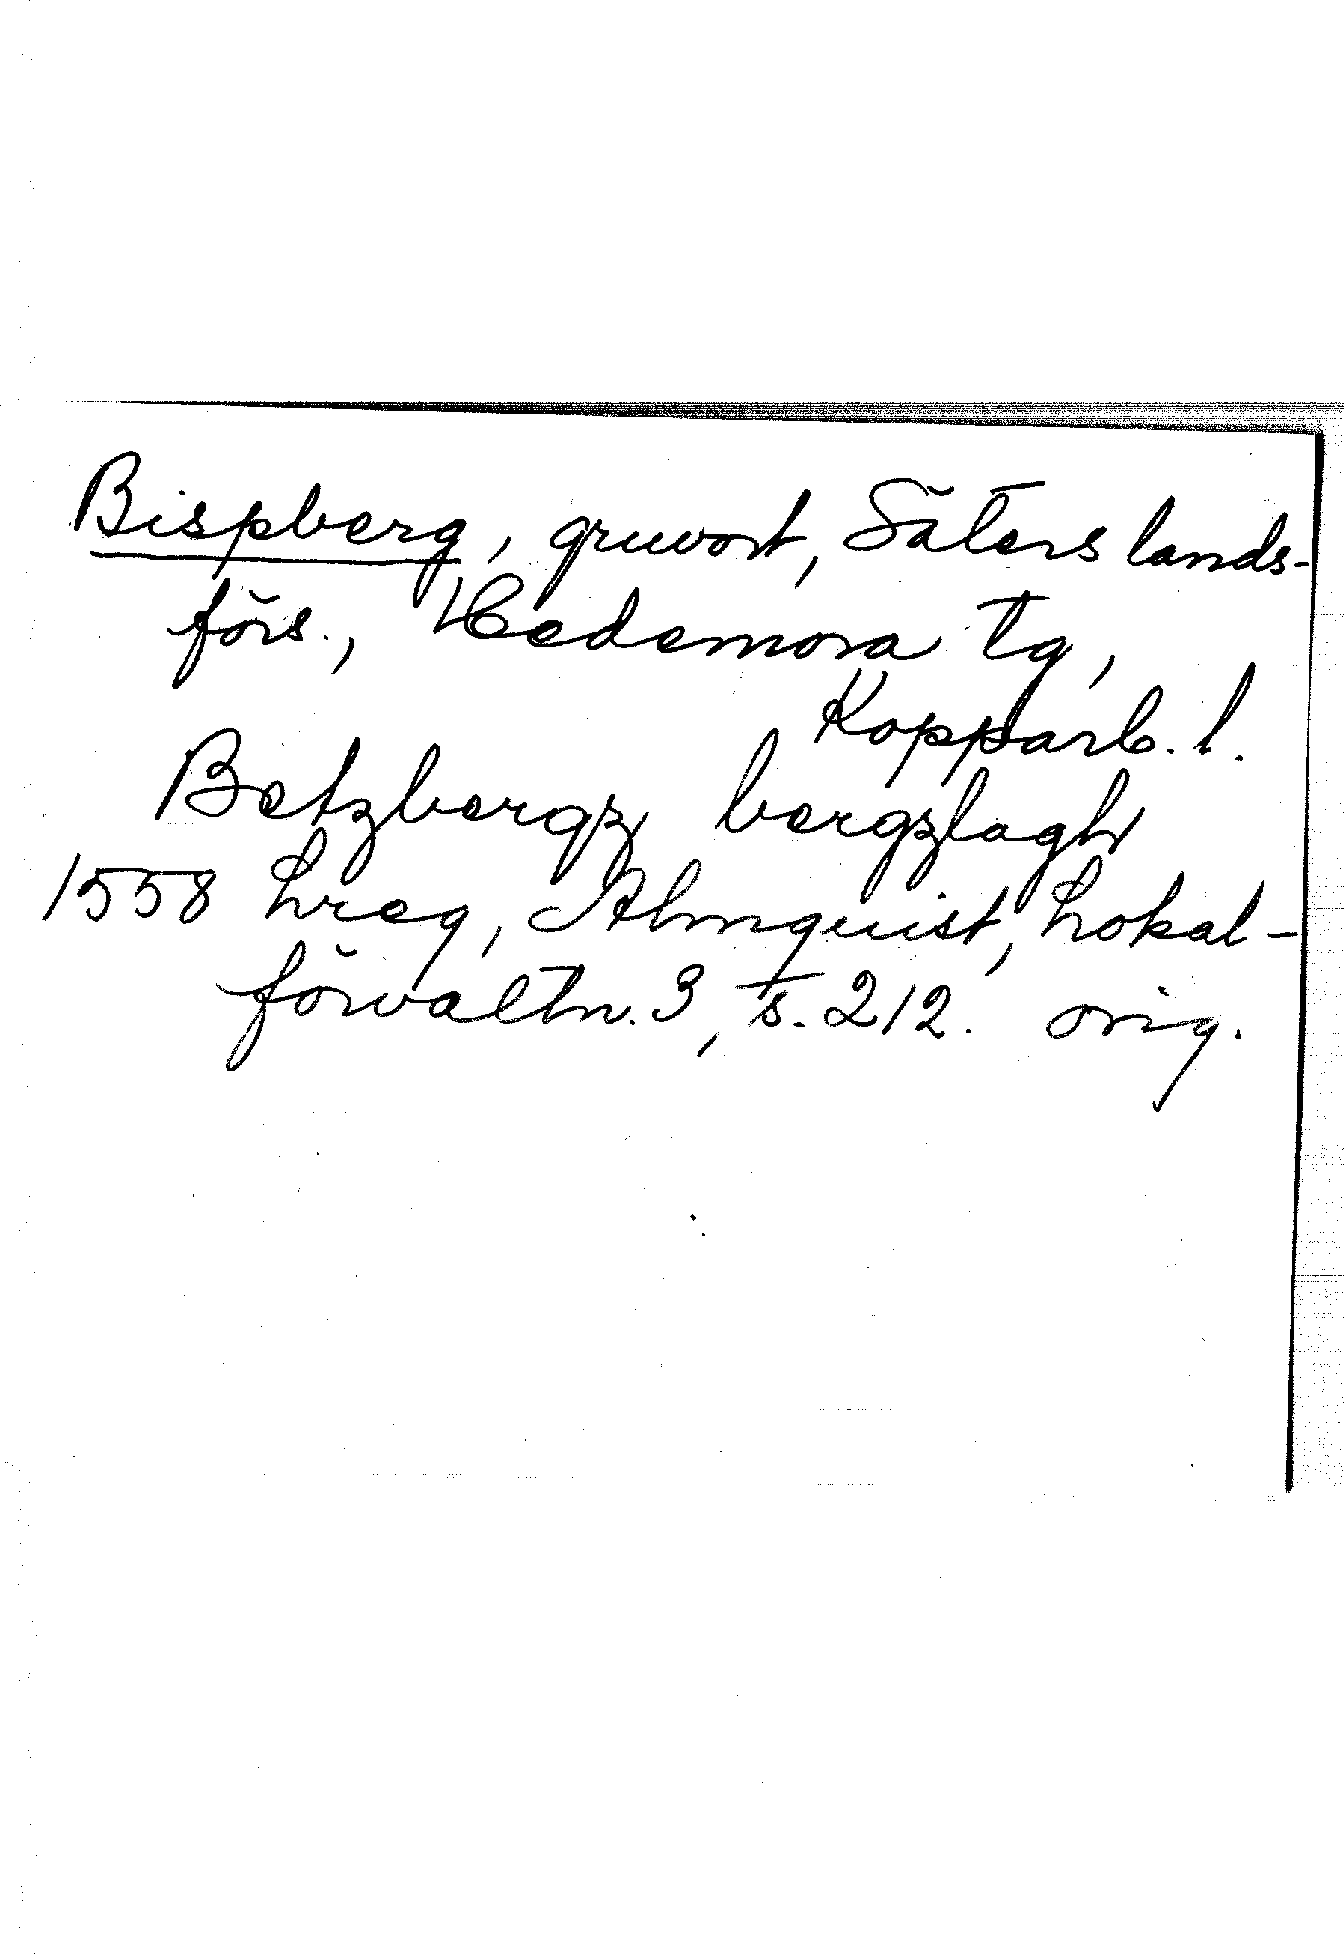 Bispberg, gruvort, Säters lands-
förs., Hedemora tg,
Kopparb. l.
Betzbergz bergzlagh
1558 Lreg, Almquist, Lokal-
förvaltn. 3, s. 212. orig.